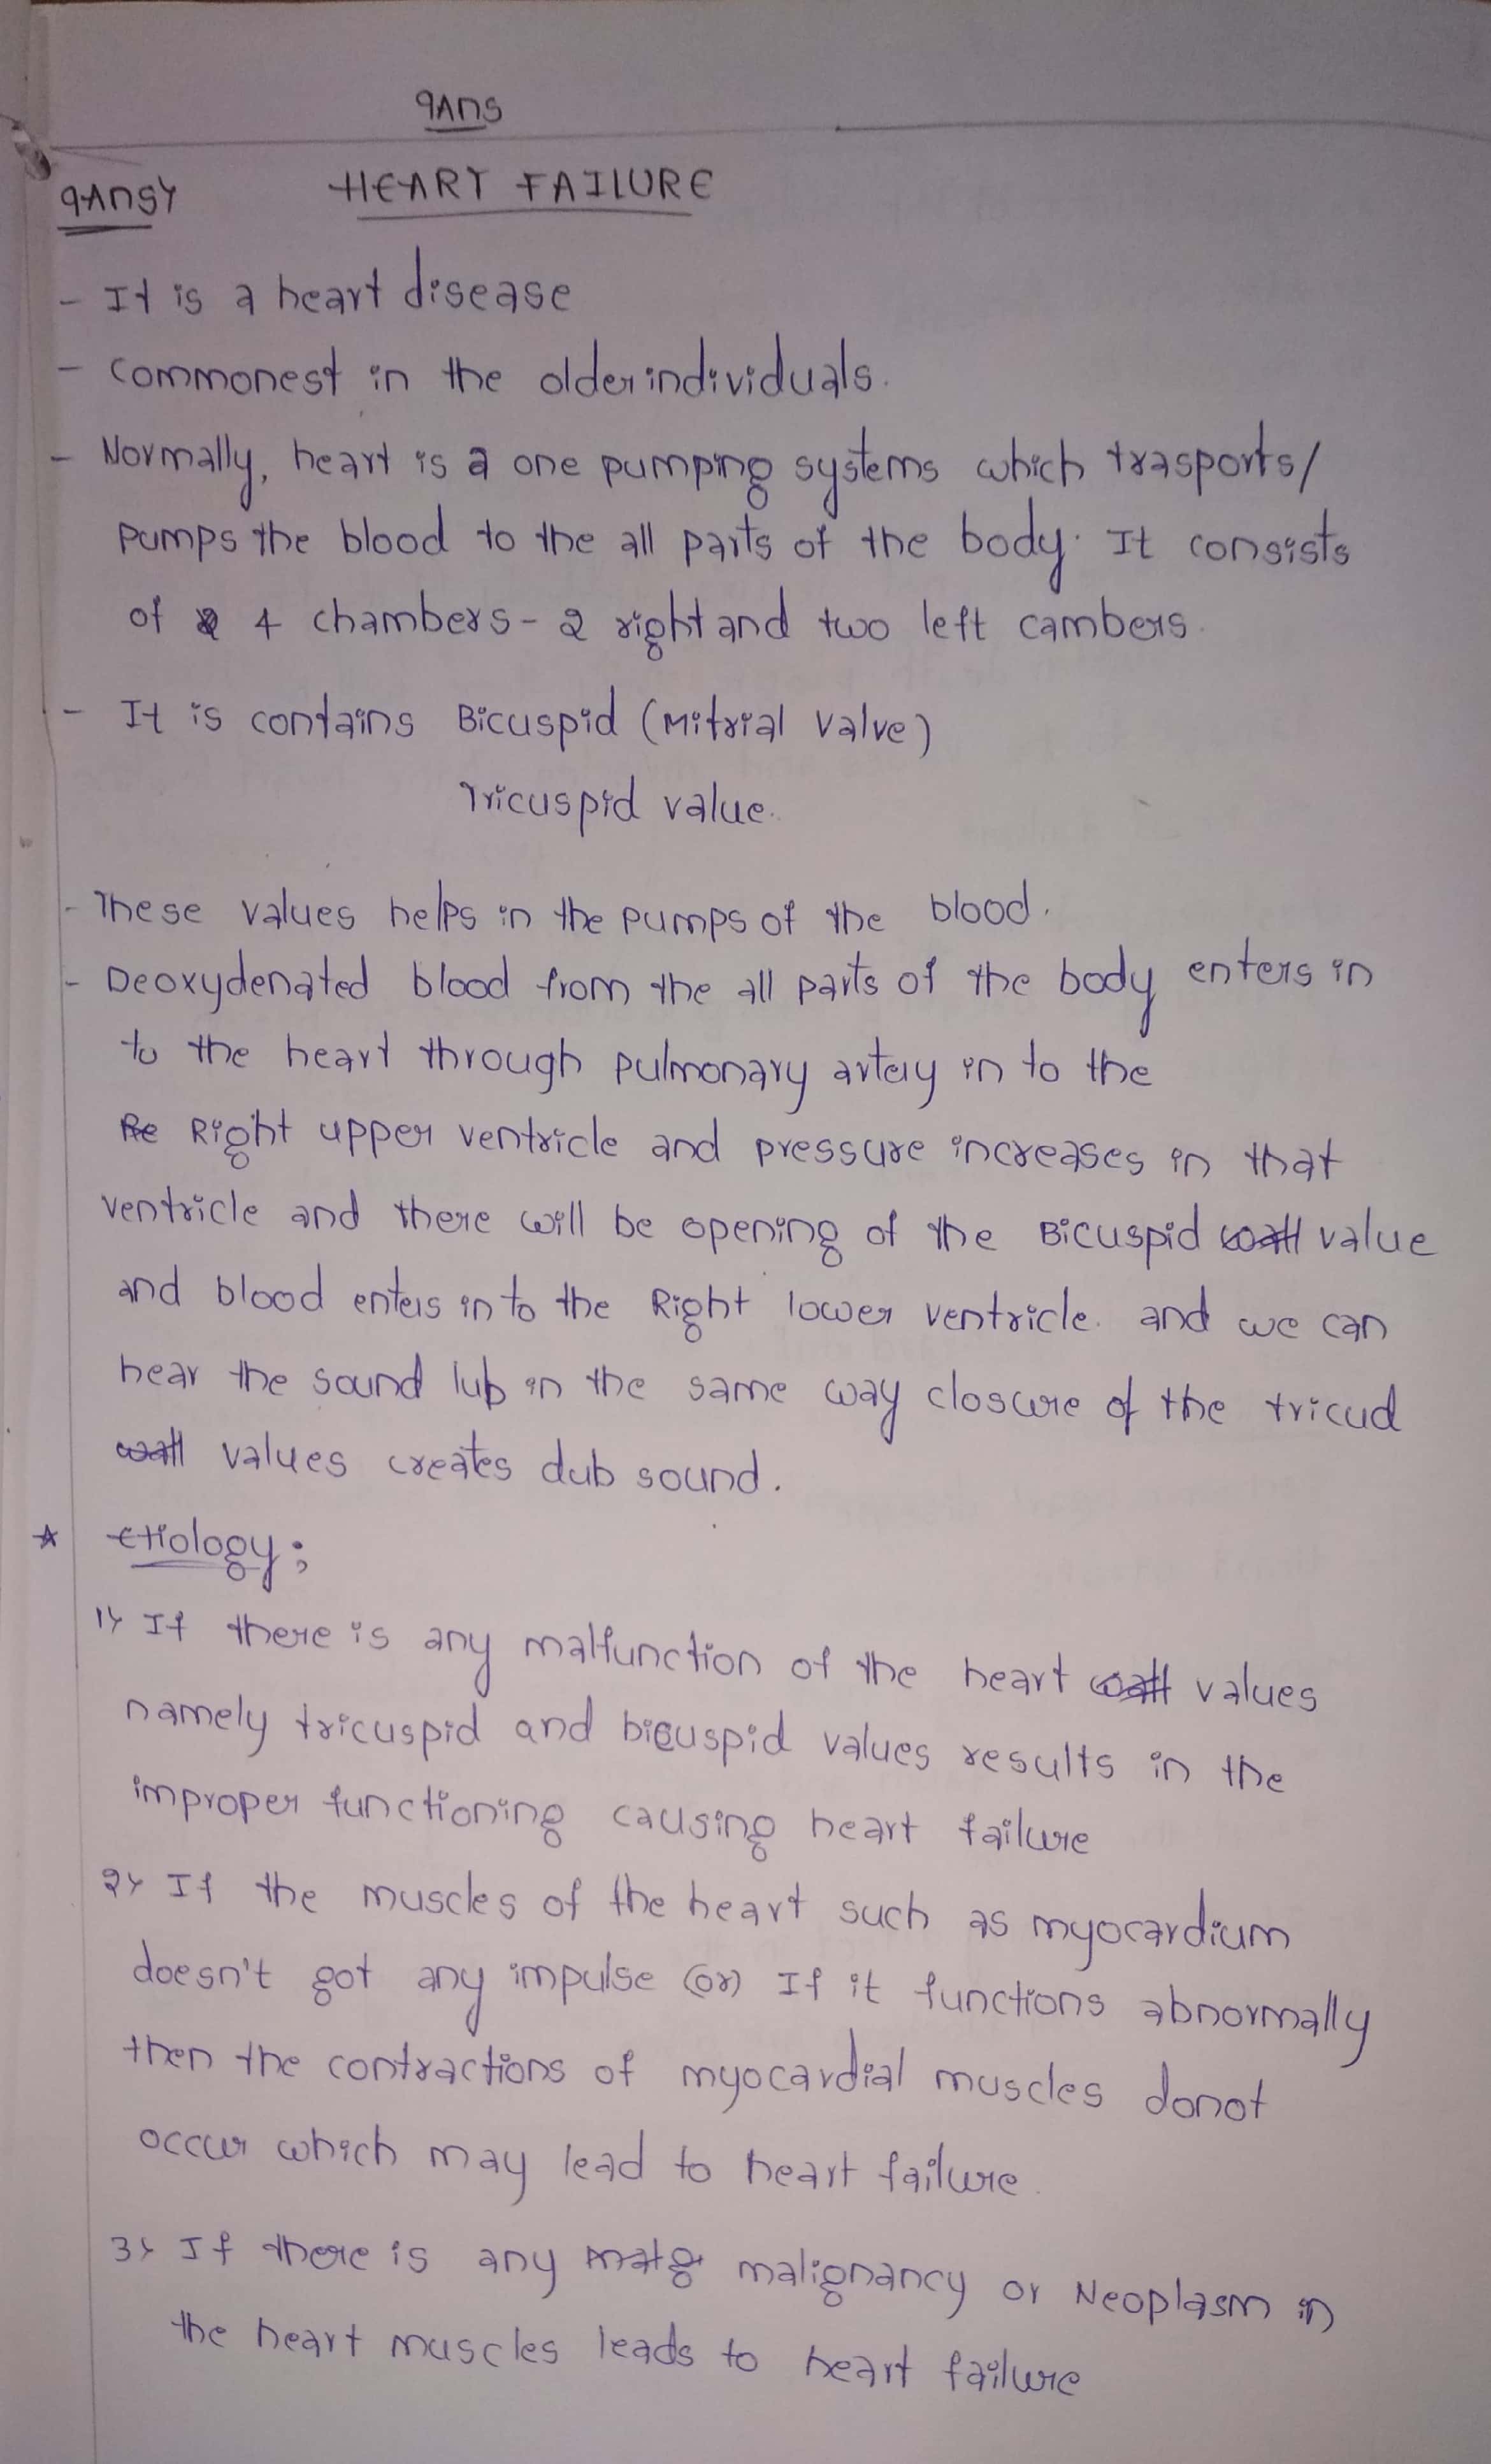 9Ans
9Ans)
HEART FAILURE
- It is a heart disease
- commonest in the older individuals.
- Normally, heart is a one pumping systems which trasports/
pumps the blood to the all parts of the body. It consists
of 4 chambers - 2 right and two left cambers.
- It is contains Bicuspid (Mitrial valve)
Tricuspid value.
- These values helps in the pumps of the blood.
- Deoxydenated blood from the all parts of the body enters in
to the heart through pulmonary artery in to the
Re Right upper ventricle and pressure increases in that
ventricle and there will be opening of the Bicuspid wall value
and blood enters in to the Right lower ventricle. and we can
hear the sound lub in the same way closure of the tricud
wall values creates dub sound.
* Etiology;
1) If there is any malfunction of the heart wall values
namely tricuspid and bicuspid values results in the
improper functioning causing heart failure
2) If the muscles of the heart such as myocardium
doesn't got any impulse (or) If it functions abnormally
then the contractions of myocardial muscles donot
occur which may lead to heart failure.
3) If there is any malignancy or Neoplasm in
the heart muscles leads to heart failure